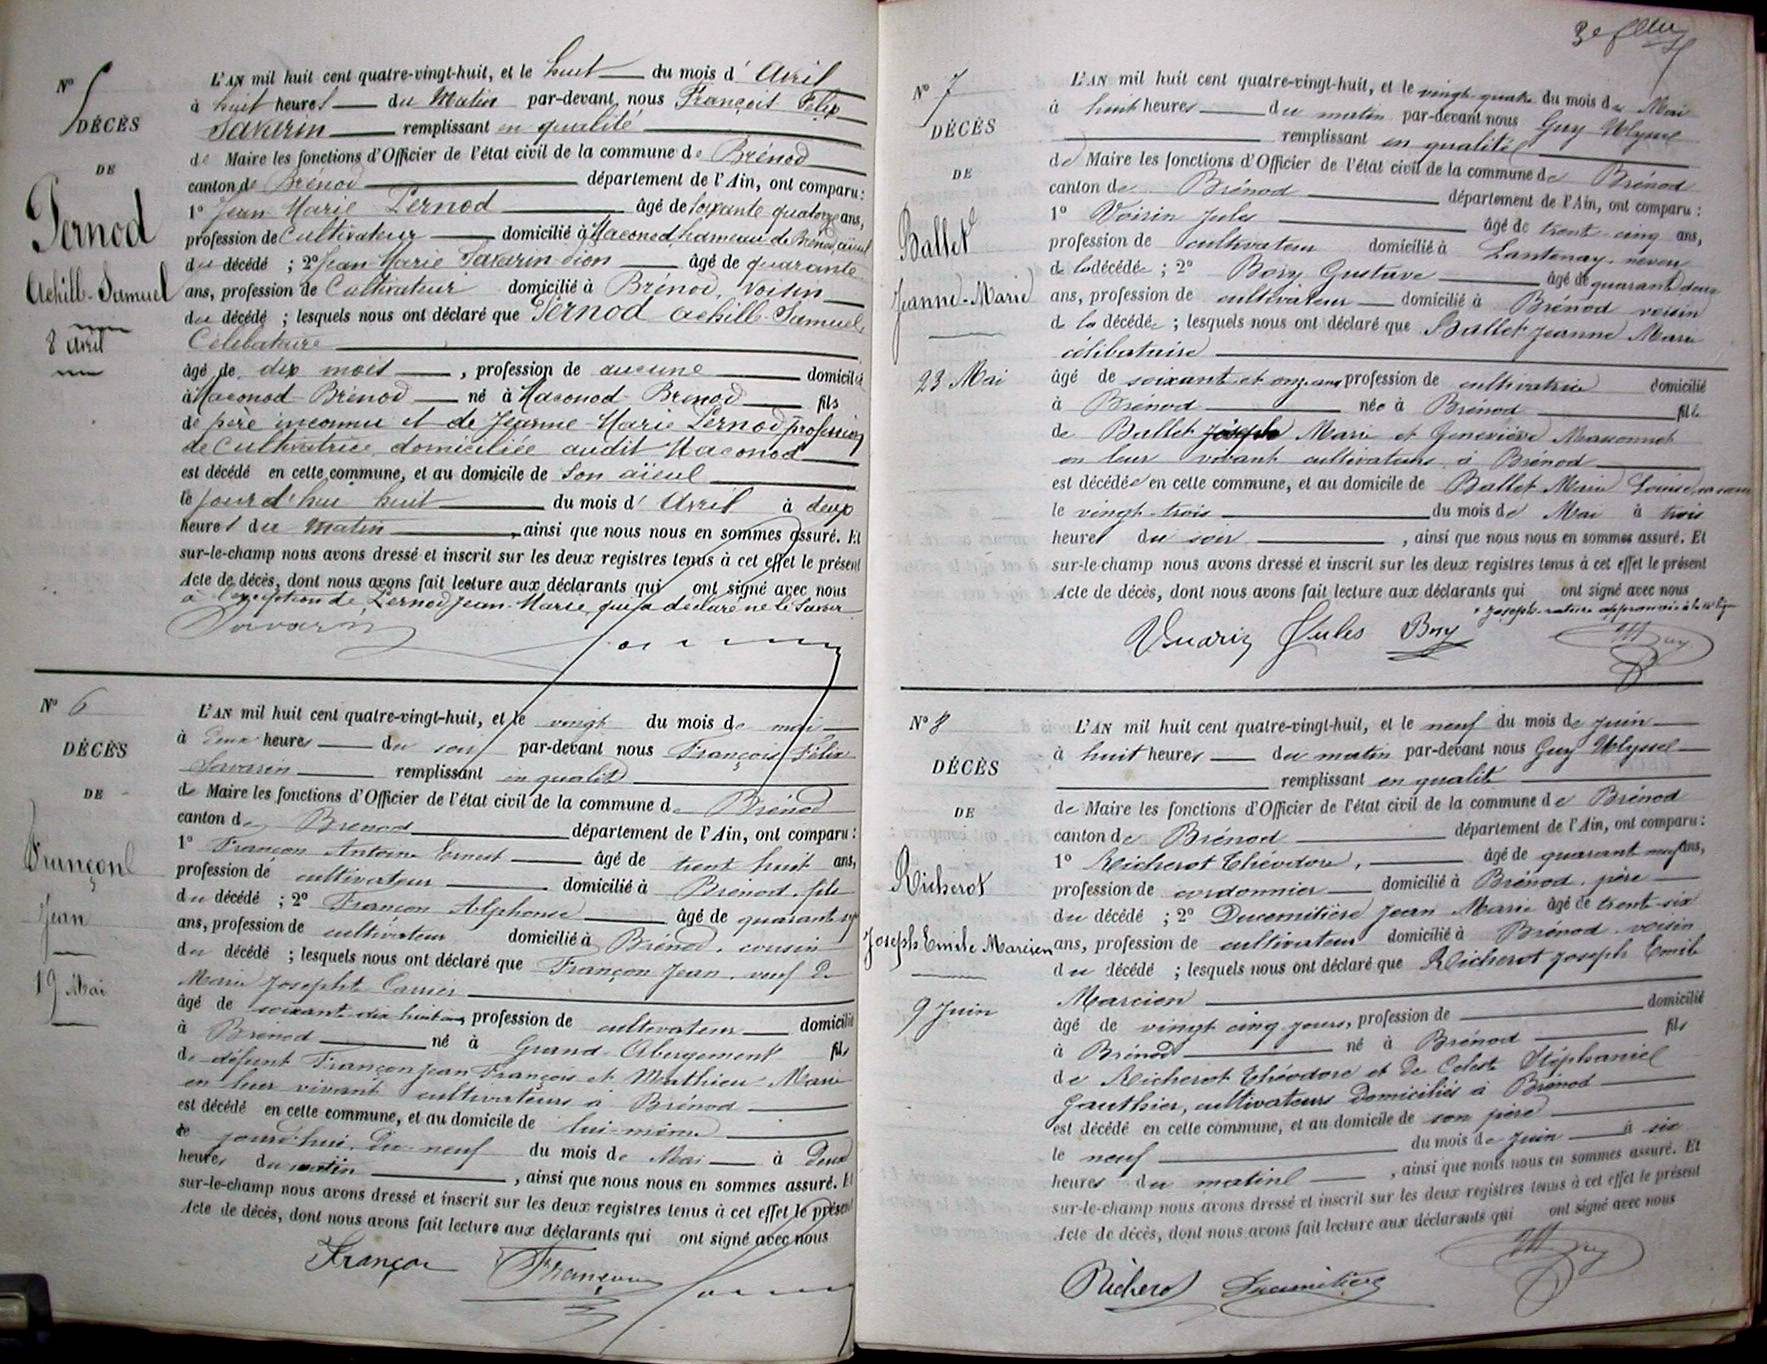 Nº 5
DÉCÈS
DE
Pernod
Achille-Samuel
8 Avril
L'AN mil huit cent quatre-vingt-huit, et le huit du mois d' Avril
à huit heures du Matin par-devant nous François Félix
Savarin remplissant en qualité
de Maire les fonctions d'Officier de l'état civil de la commune de Brénod
canton de Brénod département de l'Ain, ont comparu :
1º Jean Marie Pernod âgé de soixante quatorze ans,
profession de Cultivateur domicilié à Maconod hameau de Brénod, aïeul
du décédé ; 2º Jean Marie Savarin dion âgé de quarante
ans, profession de Cultivateur domicilié à Brénod, voisin
du décédé ; lesquels nous ont déclaré que Pernod achille-Samuel,
Célibataire
âgé de dix mois , profession de aucune domicilié
à Maconod Brénod né à Maconod Brenod fils
de père inconnu et de Jeanne-Marie Pernod profession
de Cultivatrice domiciliée audit Maconod
est décédé en cette commune, et au domicile de son aïeul
le jourd'hui huit du mois d' Avril à deux
heures du Matin , ainsi que nous nous en sommes assuré. Et
sur-le-champ nous avons dressé et inscrit sur les deux registres tenus à cet effet le présent
Acte de décès, dont nous avons fait lecture aux déclarants qui ont signé avec nous
à l'exception de Pernod Jean-Marie qui a déclaré ne le savoir
Savarin
Nº 6
DÉCÈS
DE
Françon
Jean
19 Mai
L'AN mil huit cent quatre-vingt-huit, et le vingt du mois de mai
à deux heures du soir par-devant nous François Félix
Savarin remplissant en qualité
de Maire les fonctions d'Officier de l'état civil de la commune de Brénod
canton de Brenod département de l'Ain, ont comparu :
1º Françon Antoine Ernest âgé de trent huit ans,
profession de cultivateur domicilié à Brenod, fils
du décédé ; 2º Françon Alphonse âgé de quarante
ans, profession de cultivateur domicilié à Brénod, cousin
du décédé ; lesquels nous ont déclaré que Françon Jean, veuf de
Marie Josephte Carrier
âgé de soixante dix huit ans profession de cultivateur domicilié
à Brénod né à Grand-Abergement fils
de défunt Françon Jean François et Mathieu Marie
en leur vivant cultivateurs à Brénod
est décédé en cette commune, et au domicile de lui-même
le jourd'hui dix-neuf du mois de Mai à deux
heures du matin , ainsi que nous nous en sommes assuré. Et
sur-le-champ nous avons dressé et inscrit sur les deux registres tenus à cet effet le présent
Acte de décès, dont nous avons fait lecture aux déclarants qui ont signé avec nous
Françon Françon
3e
Nº 7
DÉCÈS
DE
Ballet
Jeanne-Marie
23 Mai
L'AN mil huit cent quatre-vingt-huit, et le vingt-quatre du mois de Mai
à huit heures du matin par-devant nous Guy Ulysse
remplissant en qualité
de Maire les fonctions d'Officier de l'état civil de la commune de Brénod
canton de Brénod département de l'Ain, ont comparu :
1º Voisin Jules âgé de trent-cinq ans,
profession de cultivateur domicilié à Lantenay, neveu
de la décédée ; 2º Bory Gustave âgé de quarant deux
ans, profession de cultivateur domicilié à Brénod voisin
de la décédée ; lesquels nous ont déclaré que Ballet Jeanne Marie
célibataire
âgé de soixant et onze ans profession de cultivatrice domicilié
à Brénod née à Brénod fille
de Ballet Joseph Marie et Geneviève Massonnet
en leur vivant cultivateurs à Brénod
est décédée en cette commune, et au domicile de Ballet Marie Louise, sa soeur
le vingt-trois du mois de Mai à trois
heures du soir , ainsi que nous nous en sommes assuré. Et
sur-le-champ nous avons dressé et inscrit sur les deux registres tenus à cet effet le présent
Acte de décès, dont nous avons fait lecture aux déclarants qui ont signé avec nous
Joseph-rature approuvée à la ligne
Vuarin Jules Bory Guy
Nº 8
DÉCÈS
DE
Richerot
Joseph Emile Marcien
9 Juin
L'AN mil huit cent quatre-vingt-huit, et le neuf du mois de Juin
à huit heures du matin par-devant nous Guy Ulysse
remplissant en qualité
de Maire les fonctions d'Officier de l'état civil de la commune de Brénod
canton de Brénod département de l'Ain, ont comparu :
1º Richerot Théodore, âgé de quarant neuf ans,
profession de cordonnier domicilié à Brénod, père
du décédé ; 2º Ducimitière Jean Marie âgé de trent-six
ans, profession de cultivateur domicilié à Brénod voisin
du décédé ; lesquels nous ont déclaré que Richerot Joseph Emile
Marcien
âgé de vingt cinq jours, profession de domicilié
à Brénod né à Brénod fils
de Richerot Théodore et de Celeste Stéphanie
Gauthier, cultivateurs domiciliés à Brénod
est décédé en cette commune, et au domicile de son père
le neuf du mois de Juin à six
heures du matin , ainsi que nous nous en sommes assuré. Et
sur-le-champ nous avons dressé et inscrit sur les deux registres tenus à cet effet le présent
Acte de décès, dont nous avons fait lecture aux déclarants qui ont signé avec nous
Richerot Ducimitière Guy